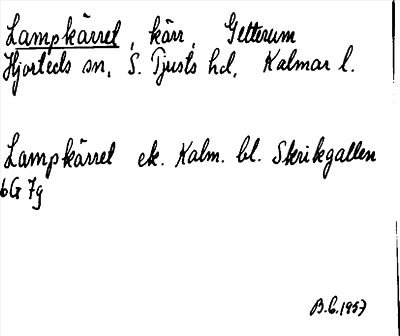 Lampkärret, kärr, Getterum
Hjorteds sn, S. Tjusts hd, Kalmar l.
Lampkärret ek. Kalm. bl. Skrikgallen
6G 7g
B.C.1957